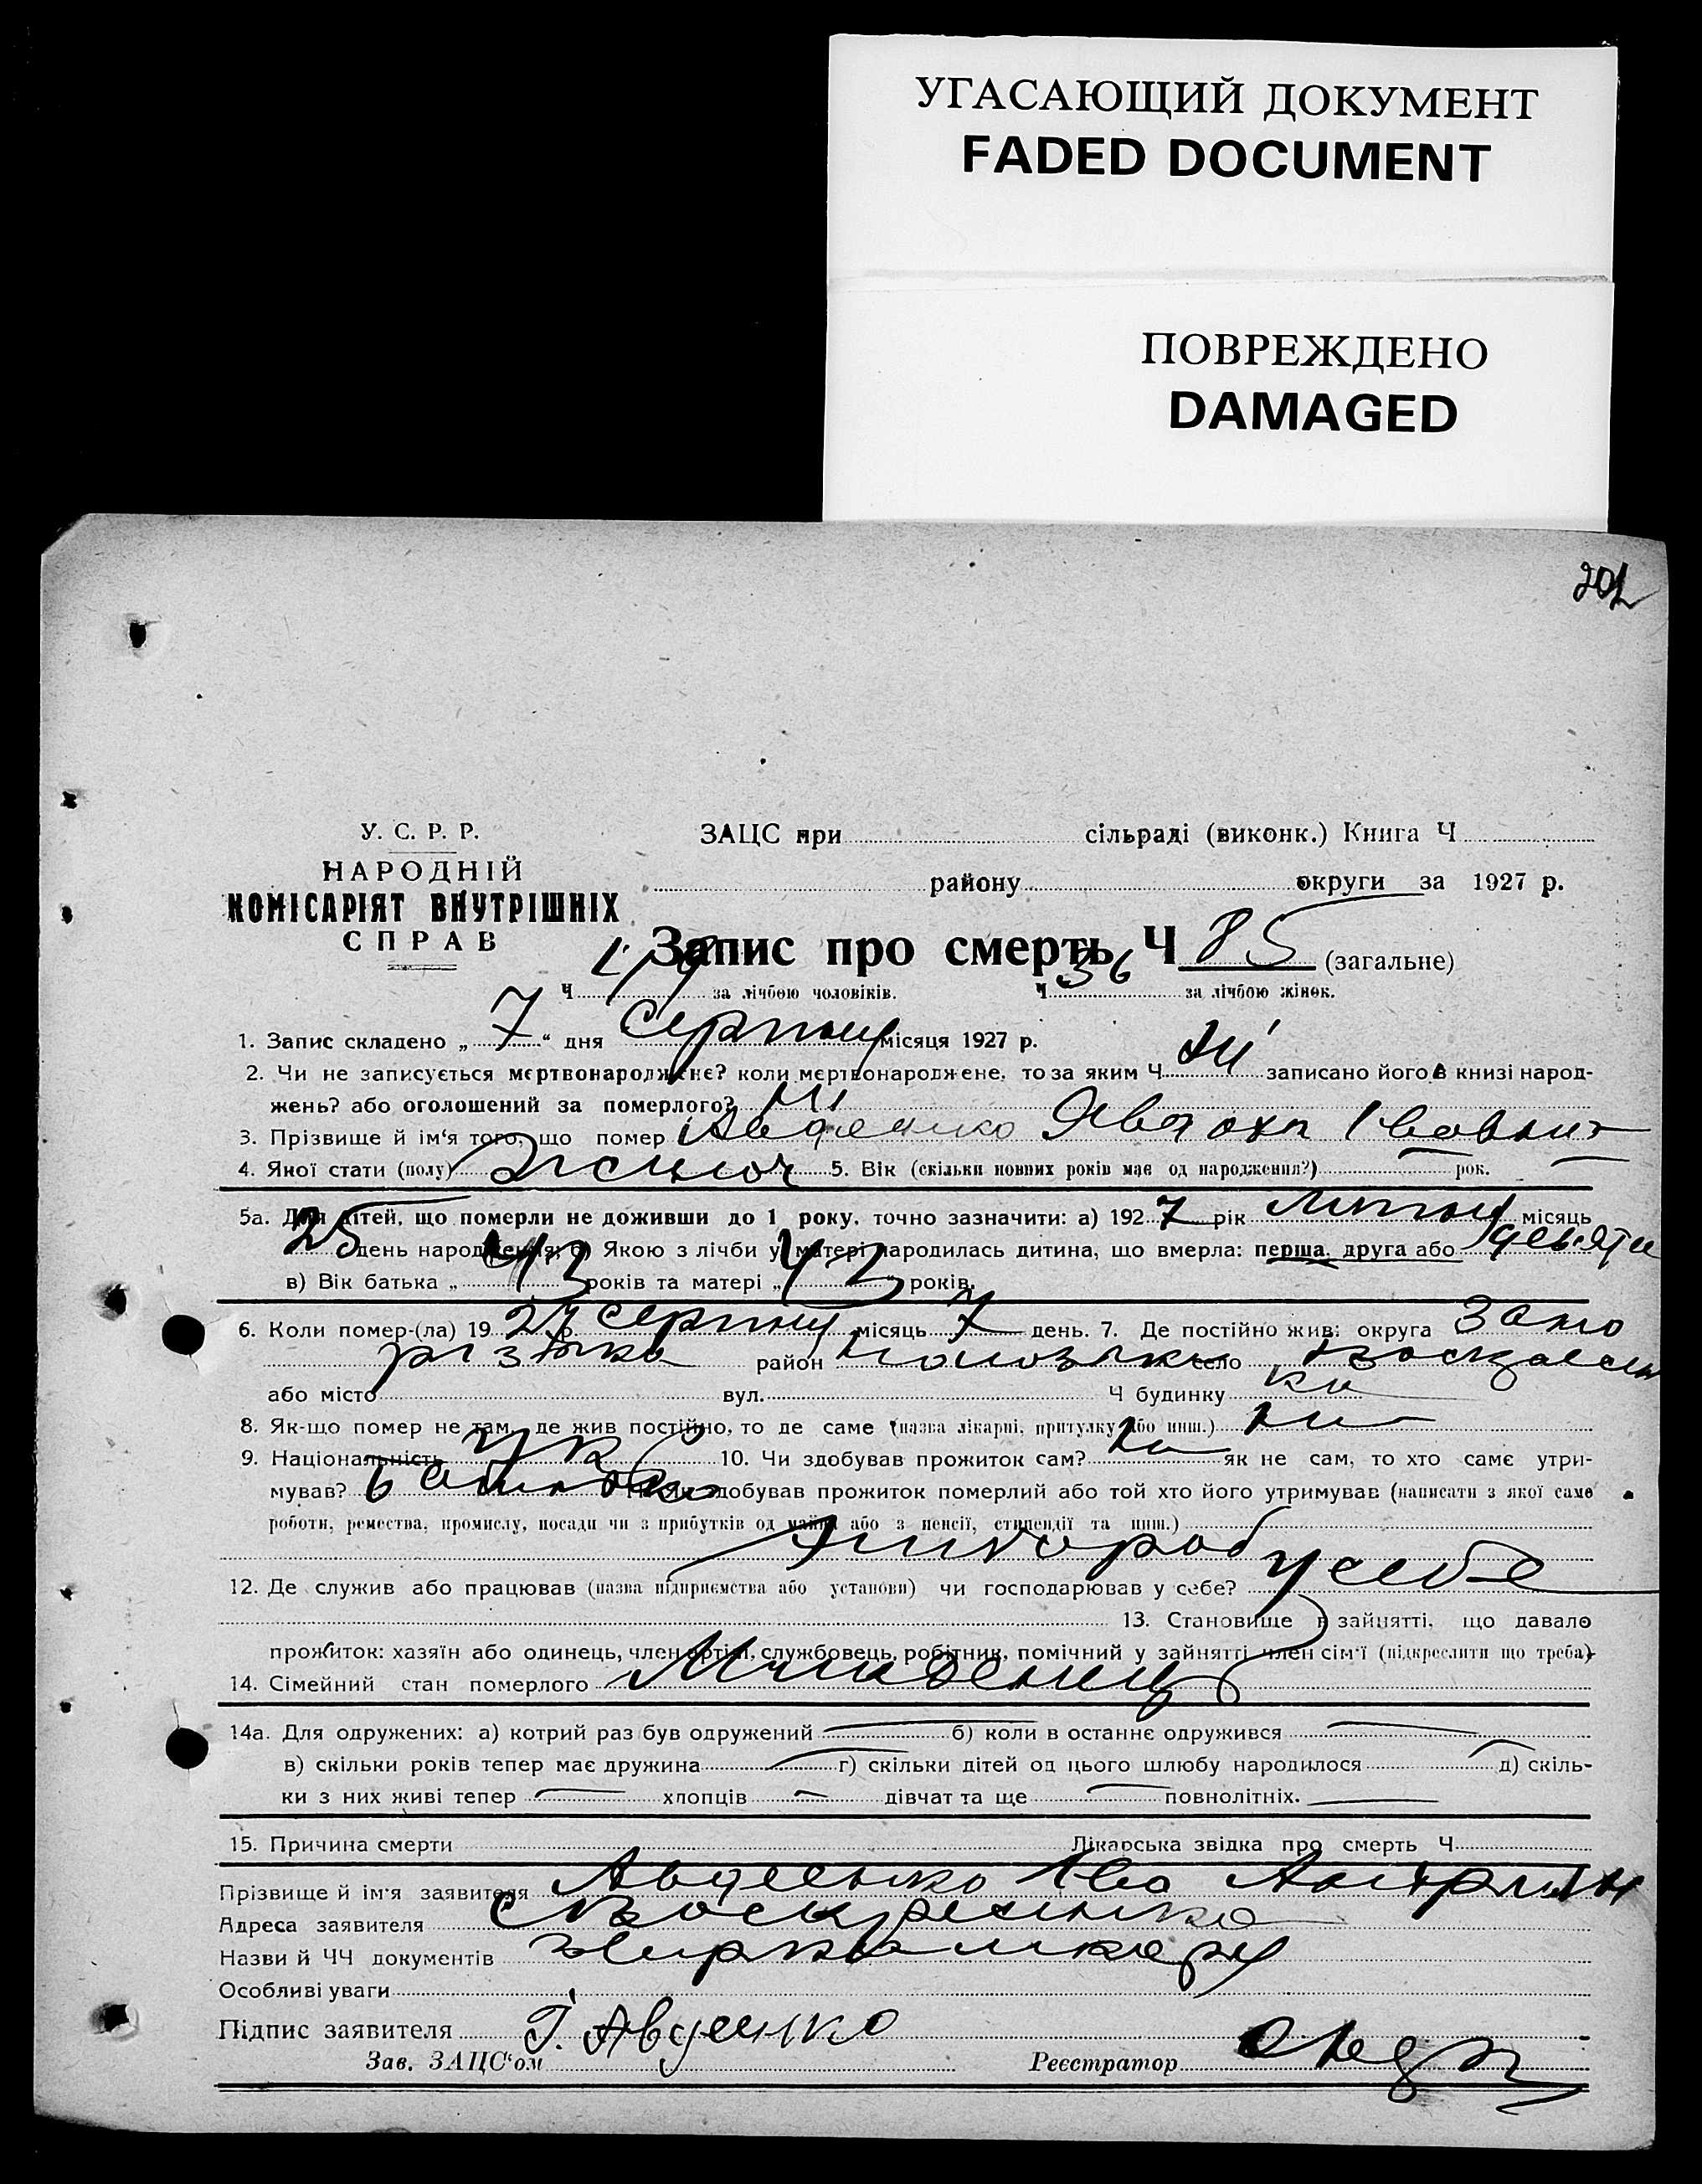 УГАСАЮЩИЙ ДОКУМЕНТ
FADED DOCUMENT
ПОВРЕЖДЕНО
DAMAGED
201
У. С. Р. Р.
НАРОДНІЙ
КОМІСАРІЯТ ВНУТРІШНІХ
СПРАВ
ЗАЦС при сільраді (виконк.) Книга Ч
району округи за 1927 р.
Запис про смерть Ч 85 (загальне)
Ч за лічбою чоловіків. Ч 36 за лічбою жінок.
1. Запис складено „ 7 “ дня серпня місяця 1927 р.
2. Чи не записується мертвонароджене? коли мертвонароджене, то за яким Ч ні записано його в книзі народ-
жень? або оголошений за померлого? ні
3. Прізвище й ім‘я того, що помер Авдеенко Явдоха Івовна
4. Якої стати (полу) жіноч 5. Вік (скільки повних років має од народження?) — рок. —
5а. Для дітей, що померли не доживши до 1 року, точно зазначити: а) 192 7 рік липня місяць
25 день народження; б) Якою з лічби у матері народилась дитина, що вмерла: перша, друга або девята
в) Вік батька „ 43 років та матері „ 43 “ років.
6. Коли помер-(ла) 19 27 р. серпня місяць 7 день. 7. Де постійно жив: округа Запо
різька район село
або місто вул. Ч будинку
8. Як-що помер не там, де жив постійно, то де саме (назва лікарні, притулку або инш.)
9. Національність Укр 10. Чи здобував прожиток сам? ні як не сам, то хто саме утри-
мував? батько 11. Як здобував прожиток померлий або той хто його утримував (написати з якої саме
роботи, ремества, промислу, посади чи з прибутків од майна або з пенсії, стипендії та инш.)
хлібороб
12. Де служив або працював (назва підприємства або установи) чи господарював у себе? у себе
13. Становище в зайнятті, що давало
прожиток: хазяїн або одинець, член артілі, службовець, робітник, помічний у зайнятті член сім‘ї (підкреслити що треба)
14. Сімейний стан померлого Младенец
14а. Для одружених: а) котрий раз був одружений — б) коли в останнє одружився —
в) скільки років тепер має дружина — г) скільки дітей од цього шлюбу народилося — д) скіль-
ки з них живі тепер — хлопців — дівчат та ще — повнолітніх. —
15. Причина смерти Лікарська звідка про смерть Ч
Прізвище й ім‘я заявителя Авдеенко Іво
Адреса заявителя с Воскресенка
Назви й ЧЧ документів
Особливі уваги
Підпис заявителя І. Авдеенко
Зав. ЗАЦС‘ом Реєстратор